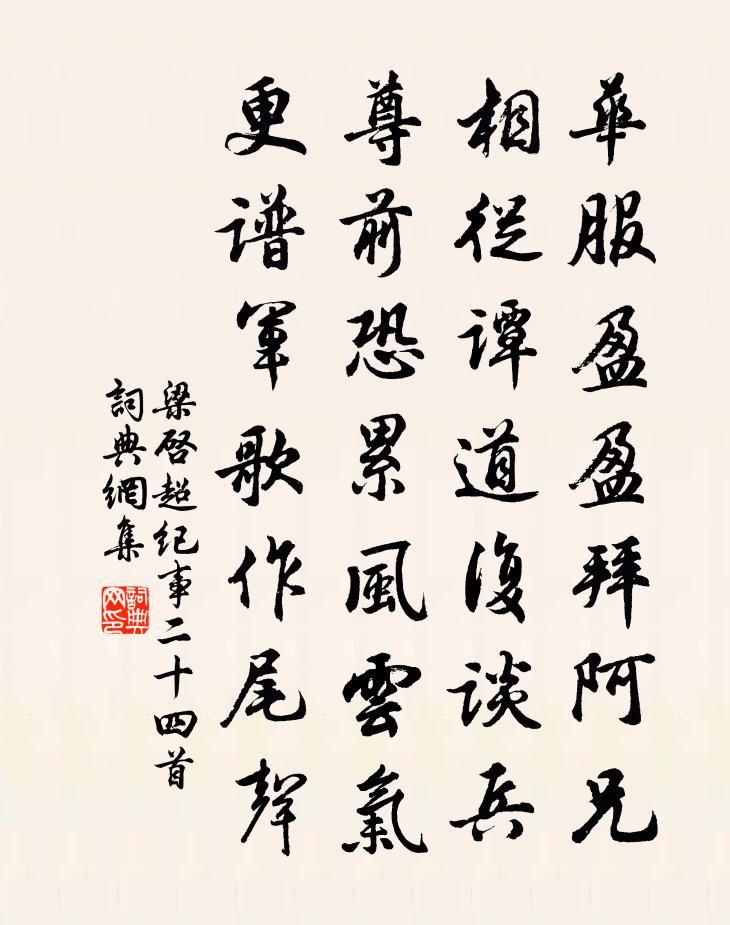 華服盈盈拜阿兄
相從譚道復談兵
尊前恐累風雲氣
更谱軍歌作尾聲
梁啓超纪事二十四首
詞典網集
詞典网印